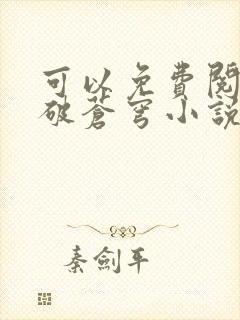 可以免費閱
破蒼穹小說
秦劍平